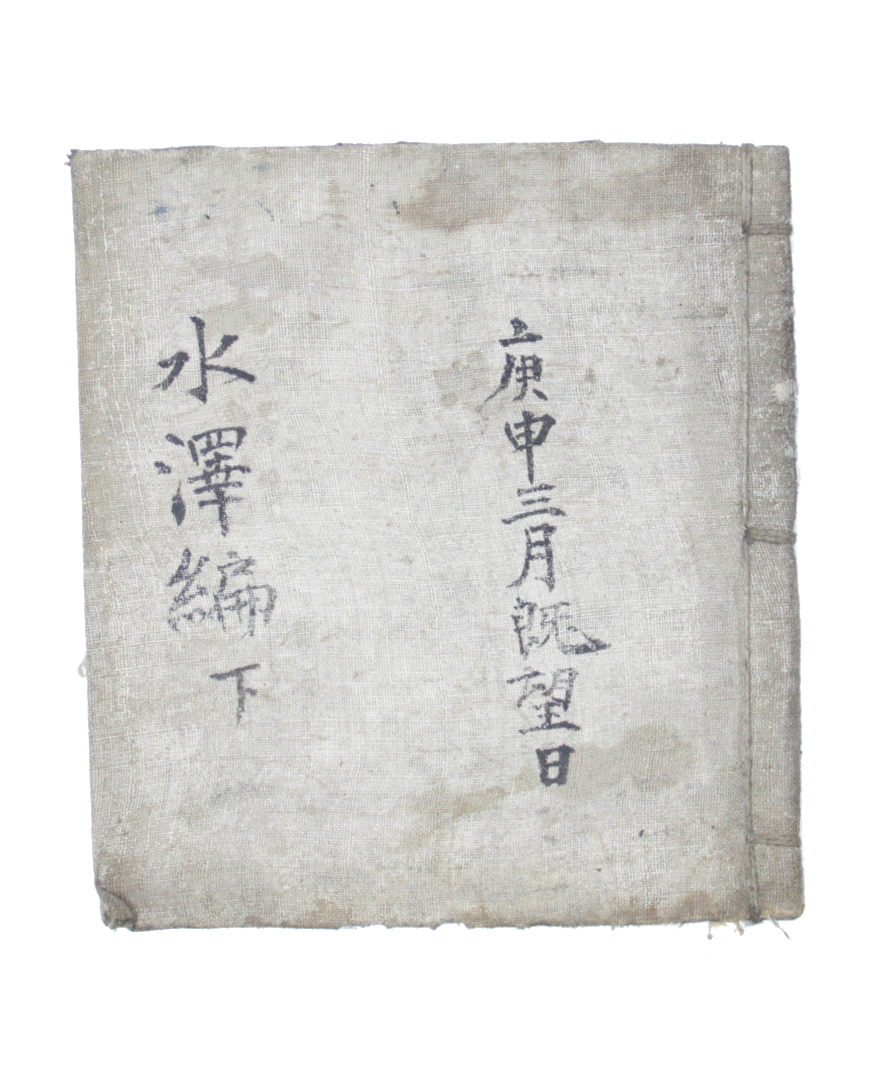 庚申三月旣望日
水澤編 下